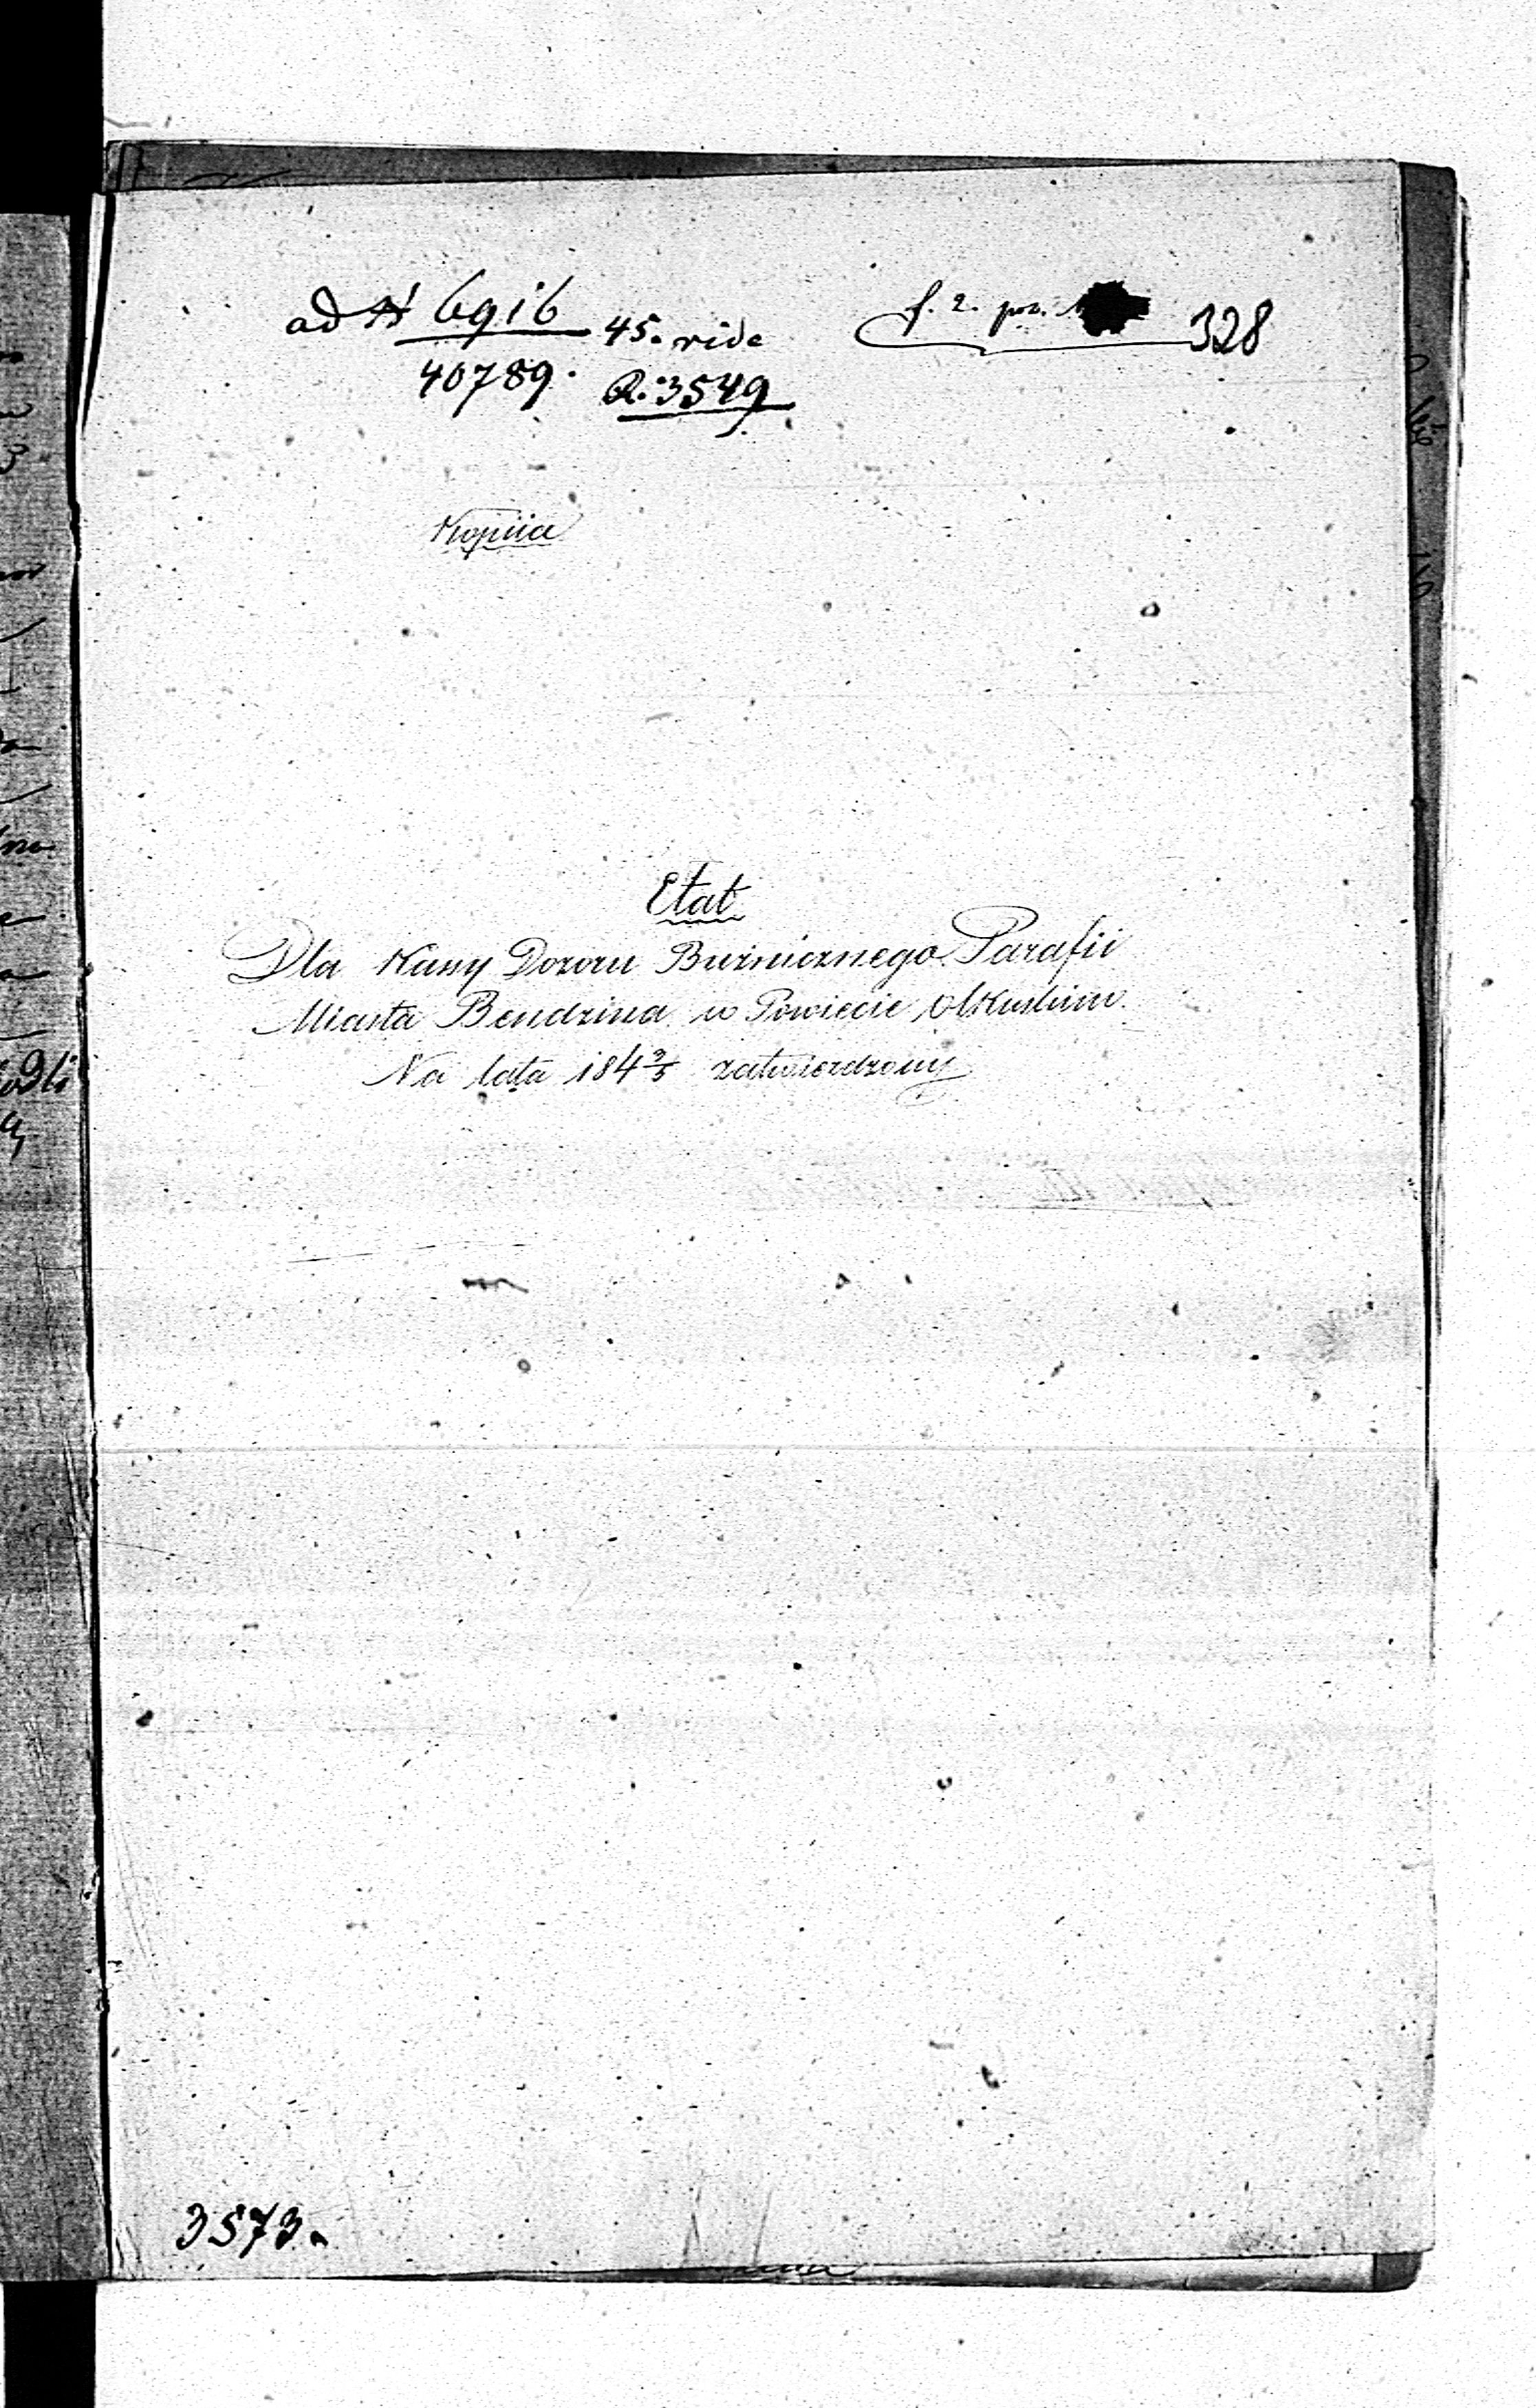 ad N 6916 45. vide
40789. R. 3549
f. 2. poz. 328
Kopiia
Etat
Dla Kassy Dozoru Bużnicznego Parafii
Miasta Bendzina w Powiecie Olkuskim
Na lata 184 3/5 zatwierdzony
3573.